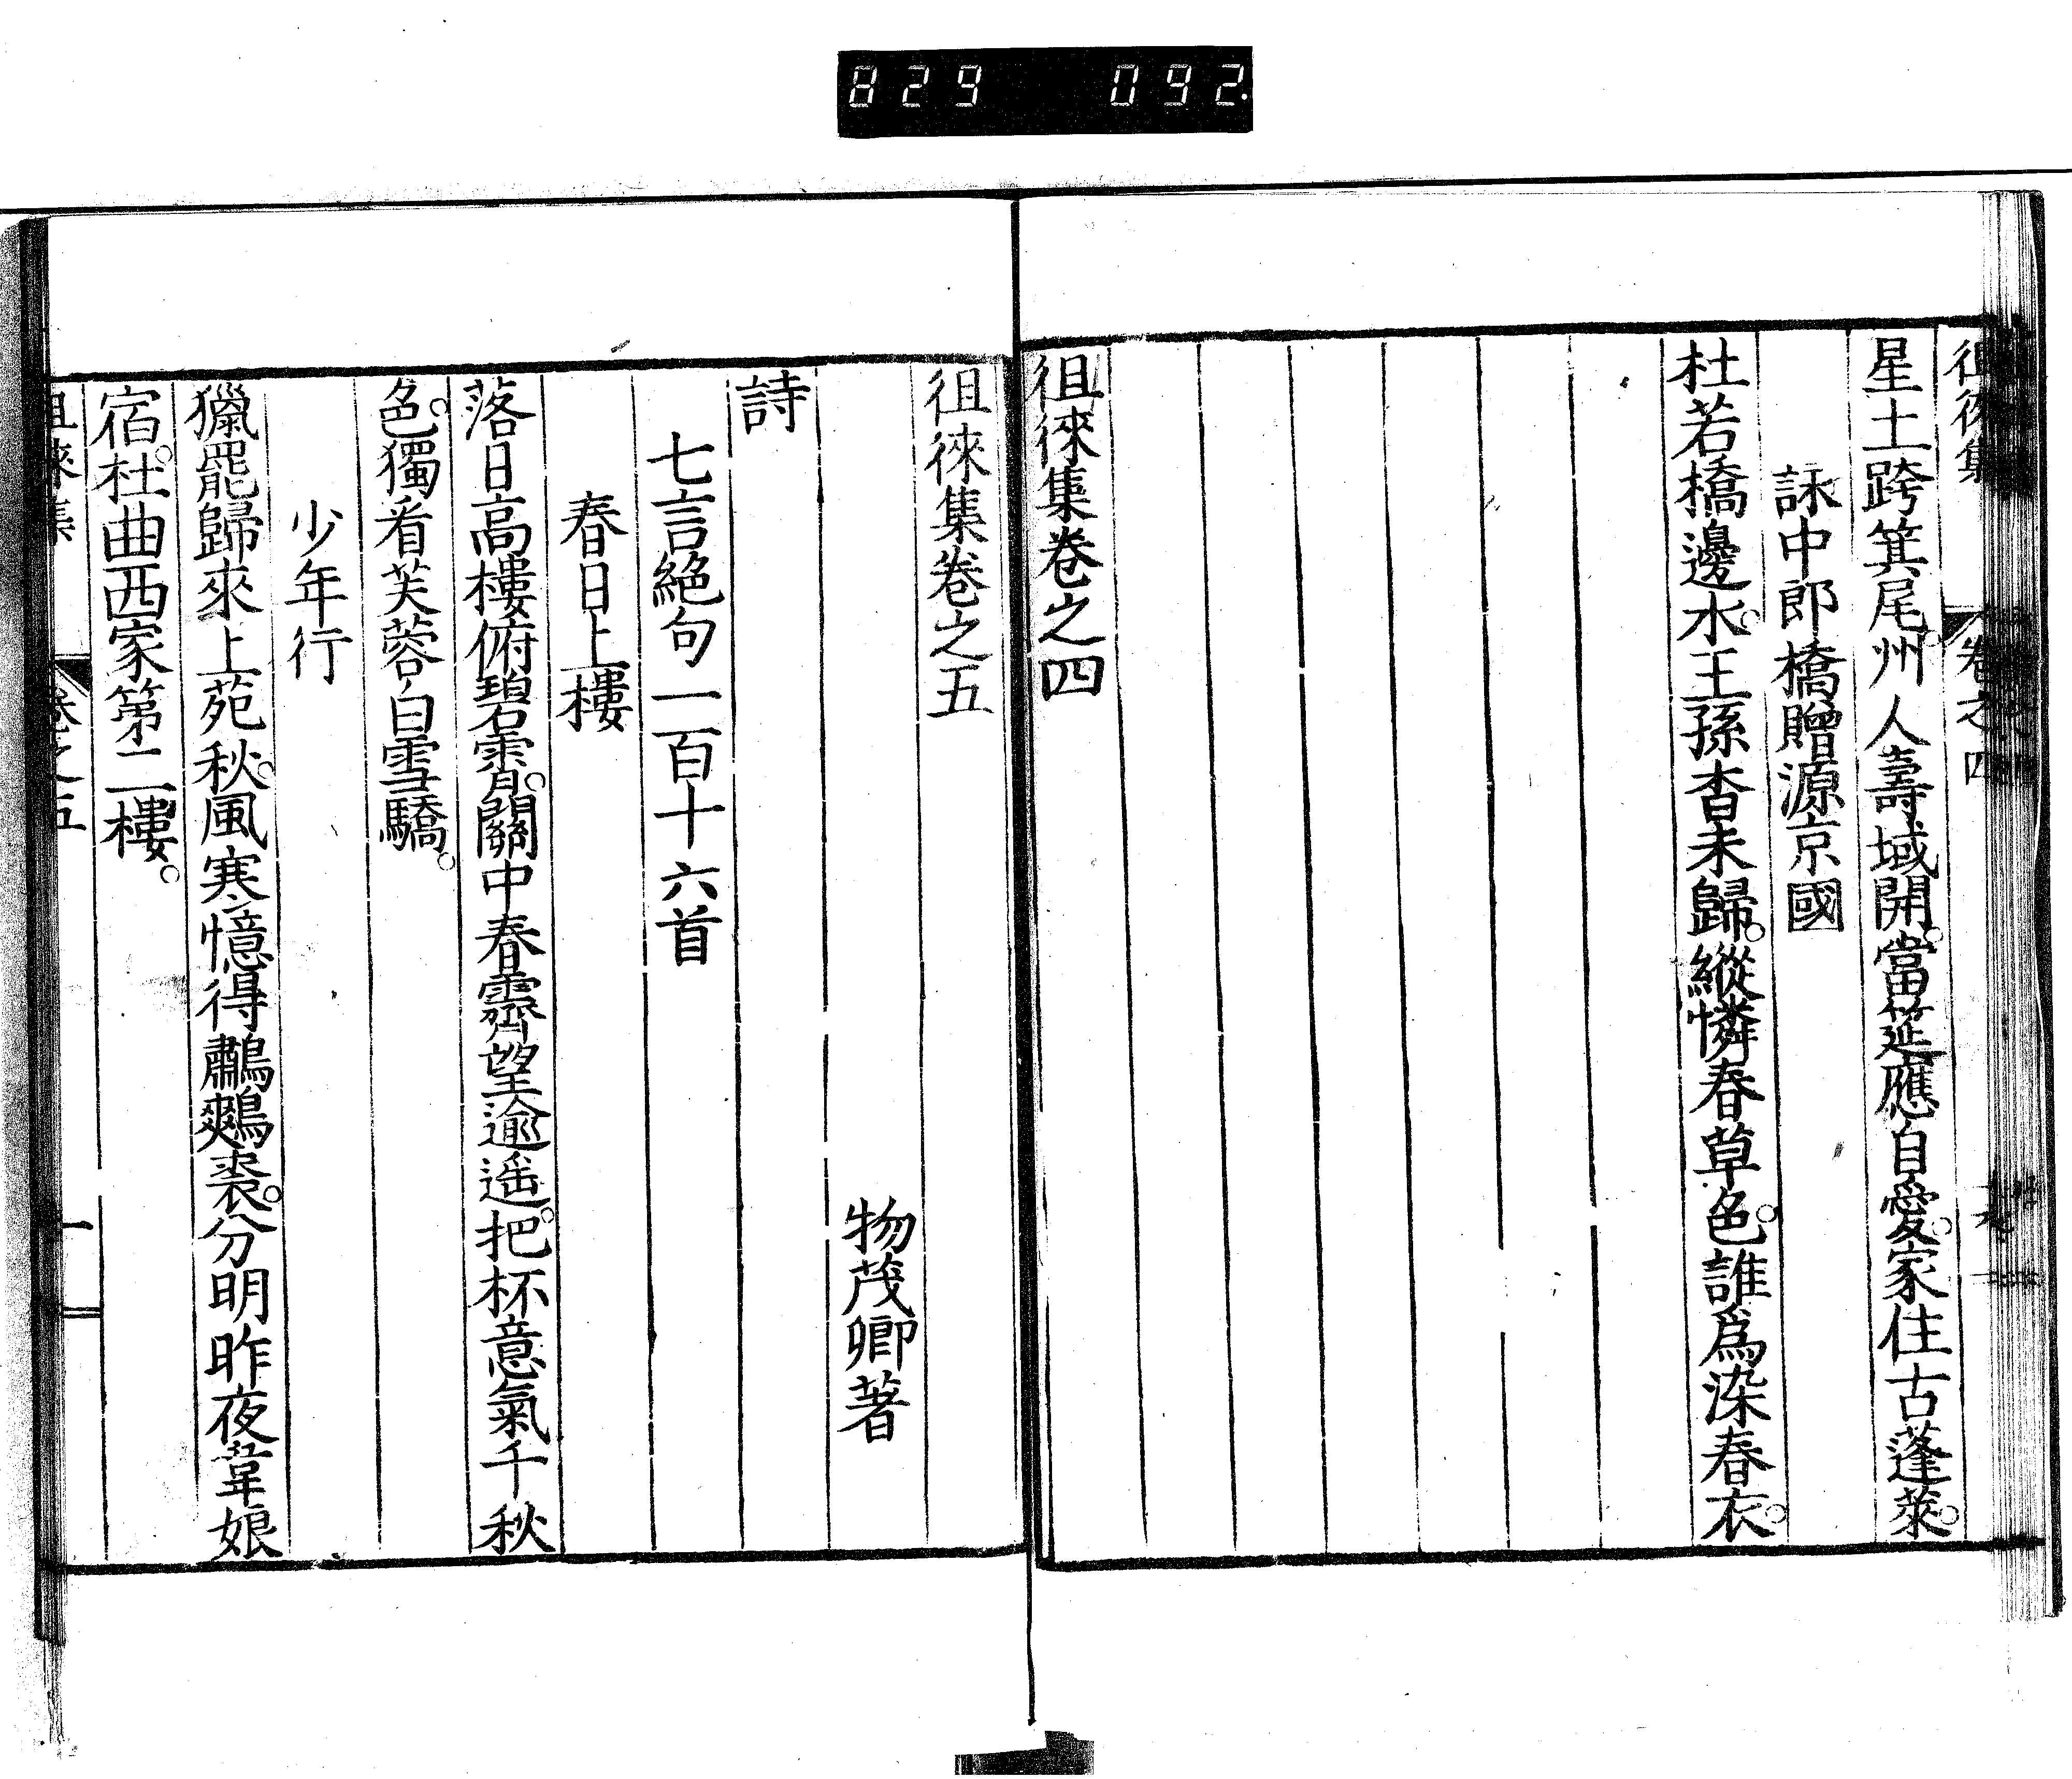 829 092
徂徠集 卷之四
星土跨箕尾。州人壽域開。當筵應自愛。家住古蓬萊。
詠中郎橋贈源京國
杜若橋邊水。王孫杳未歸。縱憐春草色。誰爲染春衣。
徂徠集卷之四
徂徠集卷之五
物茂卿著
詩
七言絕句一百十六首
春日上樓
落日高樓俯碧霄。關中春霽望逾遙。把杯意氣千秋
色。獨看芙蓉白雪驕。
少年行
獵罷歸來上苑秋。風寒憶得鷫鷞裘。分明昨夜韋娘
宿。杜曲西家第二樓。
徂徠集 卷之五 一